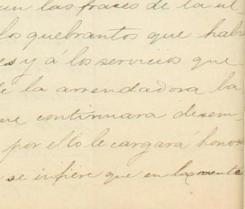 un las frases de la ul
los quebrantos que hab
es y á los servicios que
de la arrendadora ba
ue continuara desem
por ello le cargará honor
se infiere que en la mente